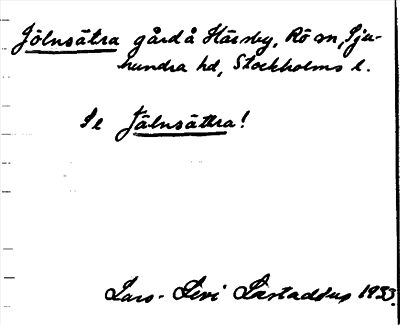 Jölnsätra gård å Härsby, Rö sn, Sju-
hundra hd, Stockholms l.
Se Jälnsättra!
Lars-Levi Læstadius 1933.